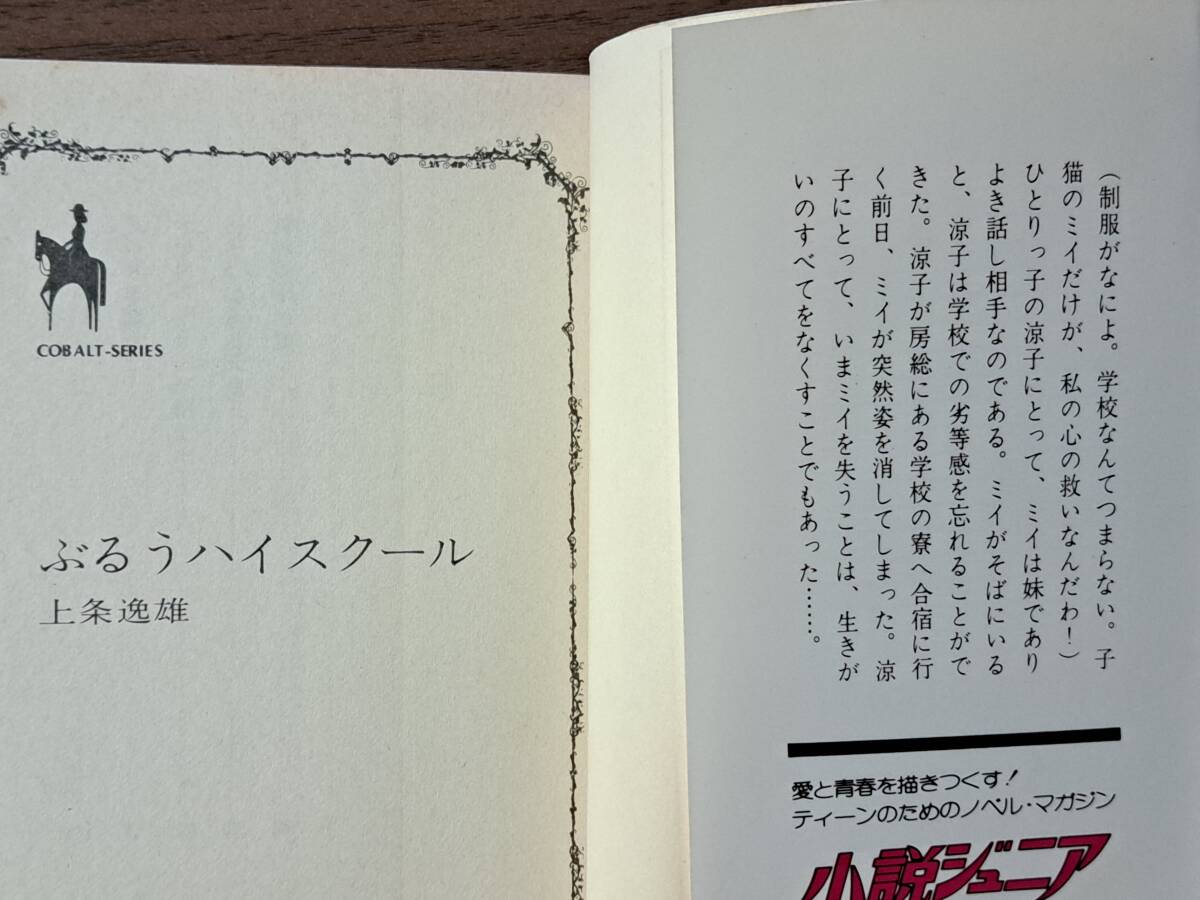 COBALT-SERIES
ぶるうハイスクール
上条逸雄
(制服がなによ。学校なんてつまらない。子
猫のミイだけが、私の心の救いなんだわ!)
ひとりっ子の涼子にとって、ミイは妹であり
よき話し相手なのである。ミイがそばにいる
と、涼子は学校での劣等感を忘れることがで
きた。涼子が房総にある学校の寮へ合宿に行
く前日、ミイが突然姿を消してしまった。涼
子にとって、いまミイを失うことは、生きが
いのすべてをなくすことでもあった……。
愛と青春を描きつくす!
ティーンのためのノベル・マガジン
小説ジュニア